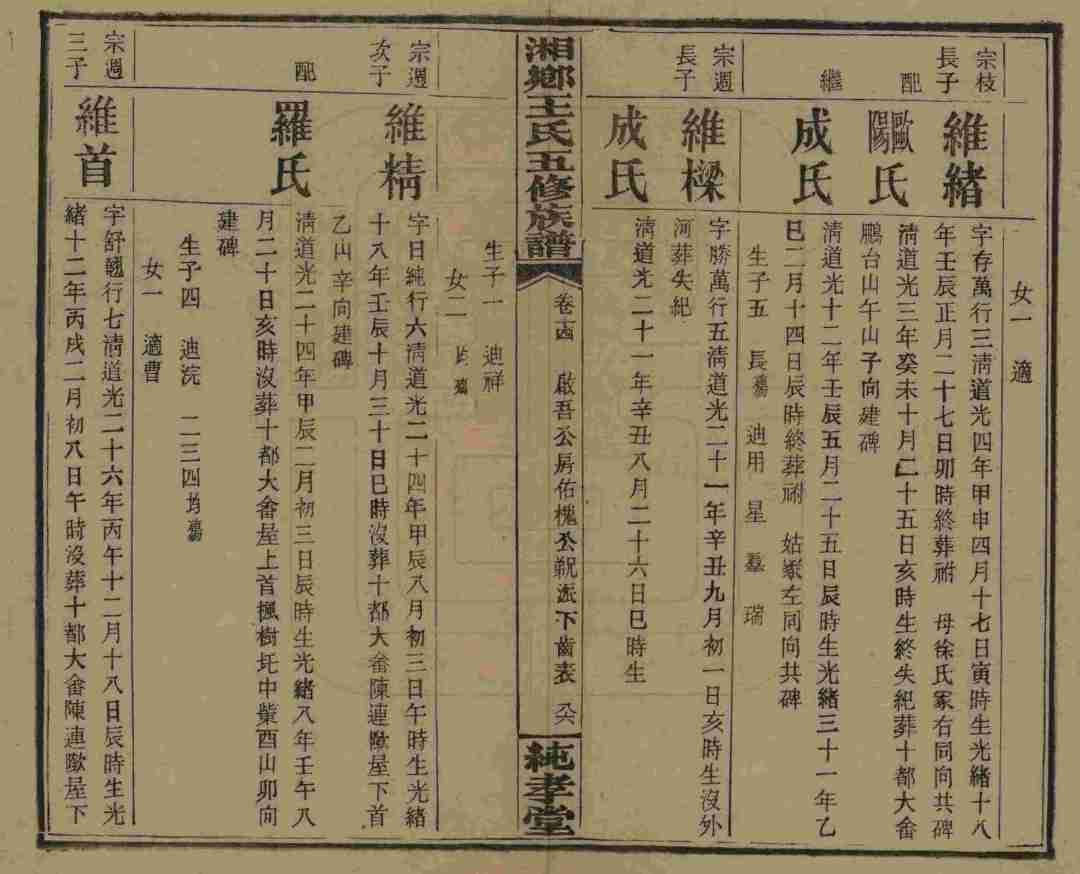 女一 適
宗枝長子
維緒
字存萬行三淸道光四年甲申四月十七日寅時生光緒十八
年壬辰正月二十七日卯時終葬祔 母徐氏冢右同向共碑
配
歐陽氏
淸道光三年癸未十月二十五日亥時生終失紀葬十都大畬
鵬台山午山子向建碑
繼
成氏
淸道光十二年壬辰五月二十五日辰時生光緒三十一年乙
巳二月十四日辰時終葬祔 姑冢左同向共碑
生子五 長殤 迪用 星 羣 瑞
宗週長子
維樑
字勝萬行五淸道光二十一年辛丑九月初一日亥時生沒外
河葬失紀
成氏
淸道光二十一年辛丑八月二十六日巳時生
湘鄉王氏五修族譜
卷十四 啟吾公房佑槐公派下齒表 六八
純孝堂
生子一 迪祥
女二 均殤
宗週次子
維精
字日純行六淸道光二十四年甲辰八月初三日午時生光緒
十八年壬辰十月三十日巳時沒葬十都大畬陳連歐屋下首
乙山辛向建碑
配
羅氏
淸道光二十四年甲辰二月初三日辰時生光緒八年壬午八
月二十日亥時沒葬十都大畬屋上首楓樹圫中嘴酉山卯向
建碑
生子四 迪浣 二三四均殤
女一 適曹
宗週三子
維首
字舒翹行七淸道光二十六年丙午十二月十八日辰時生光
緒十二年丙戌二月初八日午時沒葬十都大畬陳連歐屋下